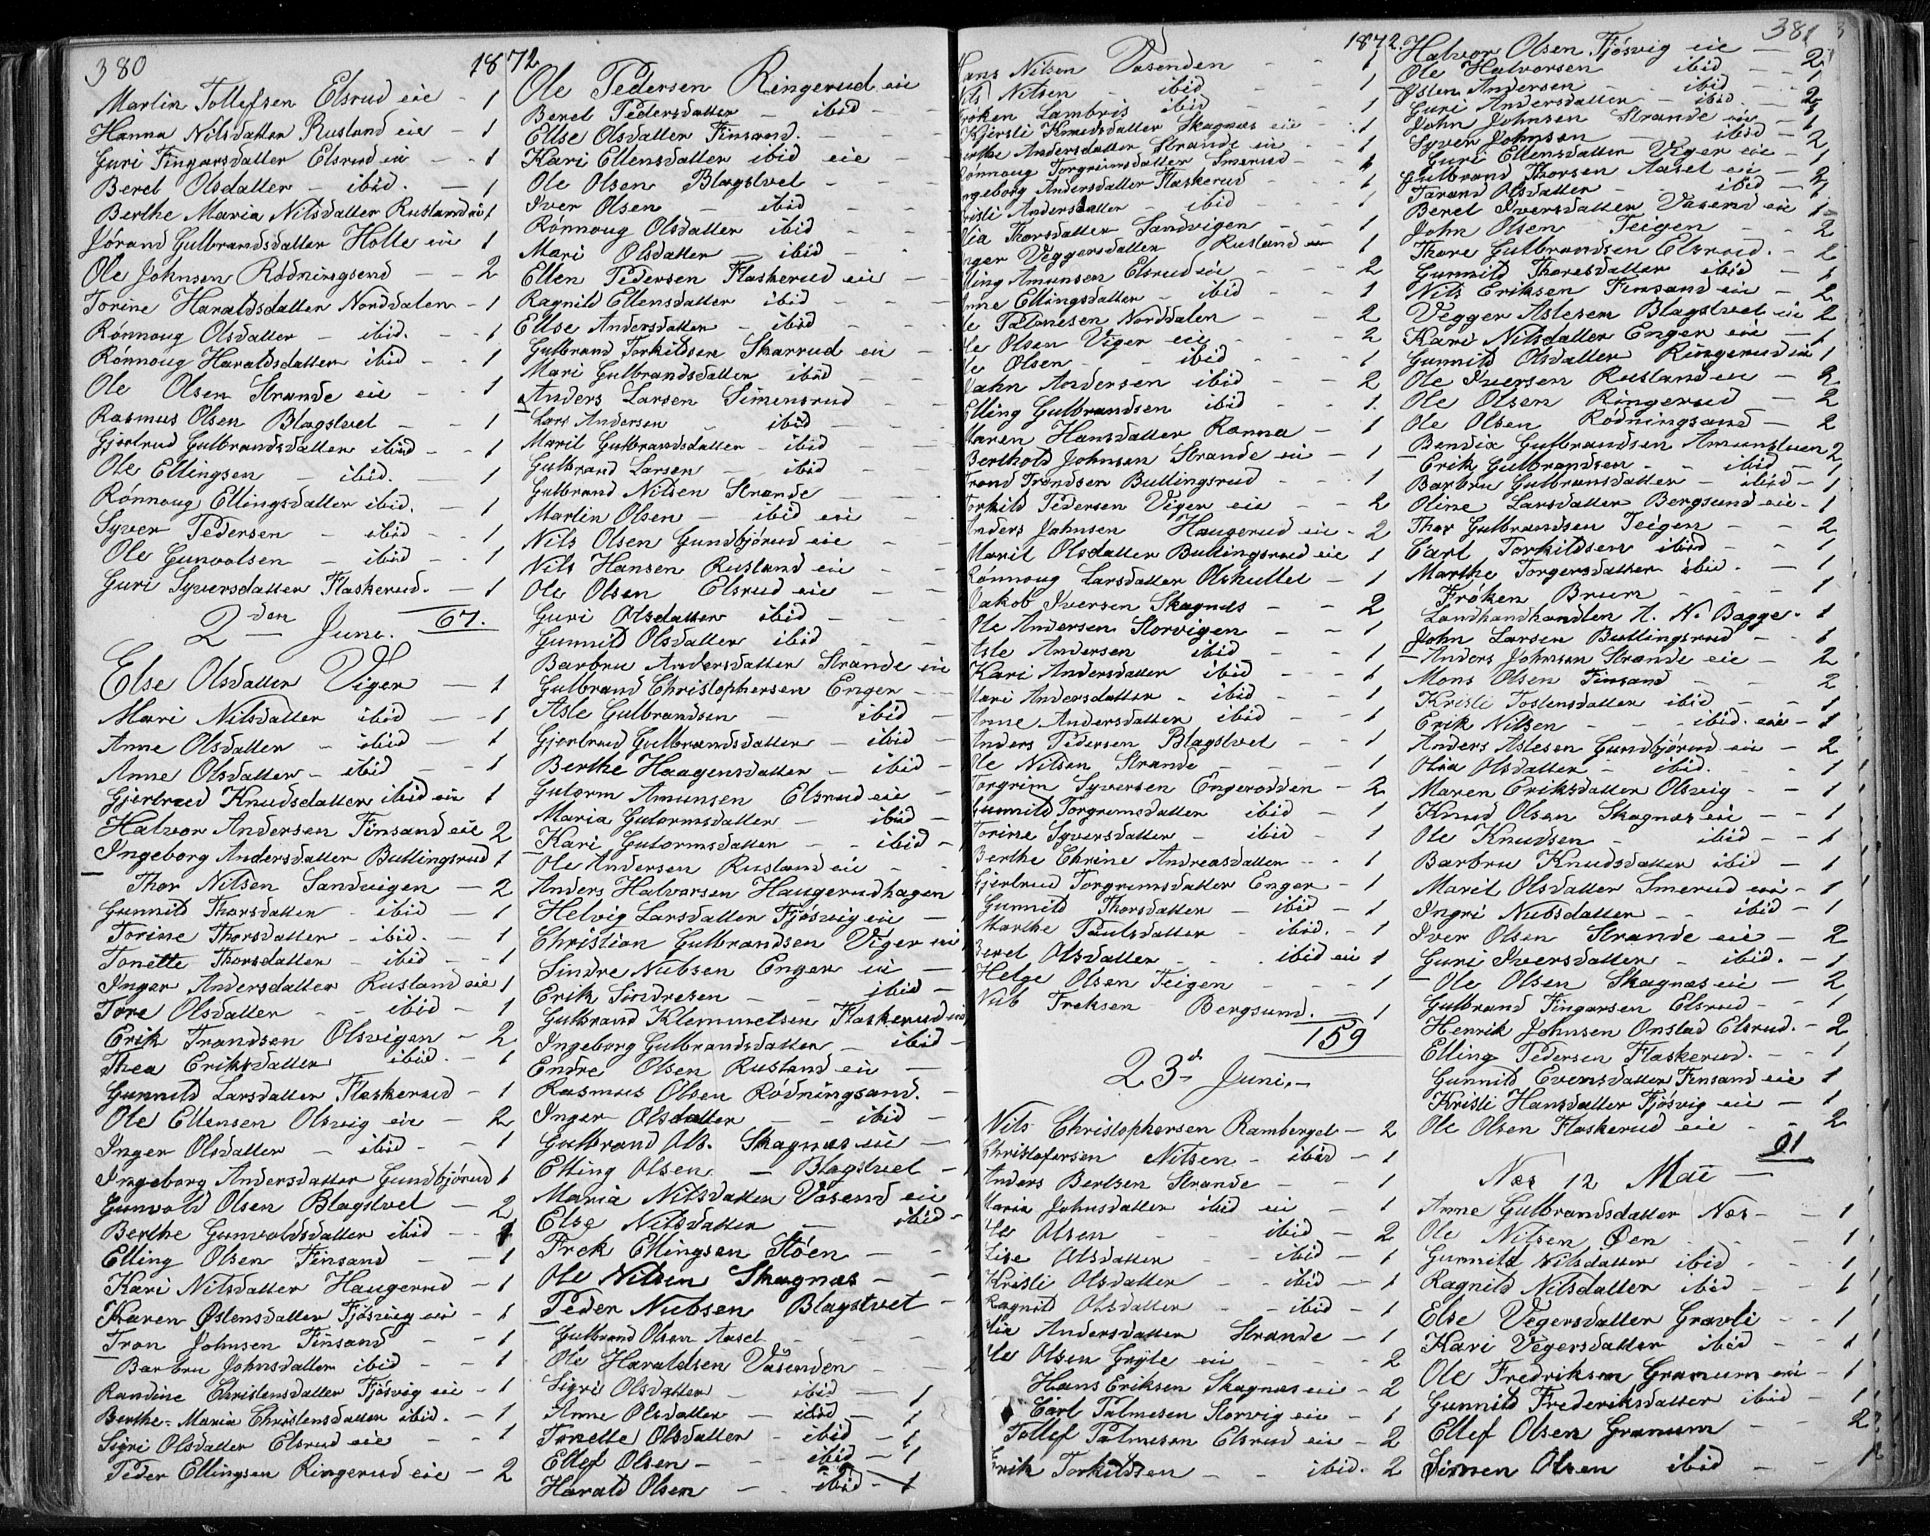 380
1872
Martin Tollefsen Elsrud eie - 1
Hanna Nilsdatter Rusland eie - 1
Guri Fingarsdatter Elsrud eie - - 1
Beret Olsdatter - ibid. - 1
Berthe Maria Nilsdatter Rusland eie 1
Jørand Gulbrandsdatter Holte eie 1
Ole Johnsen Rødningsend - - 2
Torine Haraldsdatter Norddalen - 1
Rønnoug Olsdatter - ibid. - 1
Rønnoug Haraldsdatter ibid - - 1
Ole Olsen Strande eie - - 1
Rasmus Olsen Blagstvet - - 1
Gjertrud Gulbrandsdatter ibid - - 1
Ole Ellingsen - ibid. - 1
Rønnoug Ellingsdatter ibid. - 1
Syver Pedersen - ibid - 1
Ole Gunvolsen - ibid - - 1
Guri Syversdatter Flaskerud. - 1
67.
2den Juni.
Else Olsdatter Viger - 1
Mari Nilsdatter ibid - - 1
Anne Olsdatter - ibid - 1
Anne Olsdatter - ibid - - 1
Gjertrud Knudsdatter ibid eie 1
Halvor Andersen Finsand eie 2
Ingeborg Andersdatter Bullingsrud 1
Thor Nilsen Sandvigen - 2
Gunnild Thorsdatter - ibid - 1
Torine Thorsdatter - ibid. - 1
Tonette Thorsdatter - ibid - - 1
Inger Andersdatter Rusland eie 1
Tore Olsdatter - - ibid - 1
Erik Trondsen Olsvigen - 2
Thea Eriksdatter ibid. - 1
Gunnild Larsdatter Flaskerud - 1
Ole Ellensen Olsvig eie - 2
Inger Olsdatter - ibid - 1
Ingeborg Andersdatter Gundbjørud 1
Gunvold Olsen Blagstvet - 2
Berthe Gunvoldsdatter ibid - - 1
Elling Olsen Finsand - - 1
Kari Nilsdatter Haugerud - 1
Karen Østensdatter Fjøsvig eie - 1
Tron Johnsen Finsand - - 1
Barbru Johnsdatter ibid - - 1
Randine Christensdatter Fjøsvig eie - 1
Berthe-Maria Christensdatter ibid. - 1
Sigri Olsdatter Elsrud eie - - 1
Peder Ellingsen Ringerud eie - 2
Ole Pedersen Ringerud eie
Beret Pedersdatter - ibid -
Ellse Olsdatter Finsand. - -
Kari Ellensdatter ibid eie - -
Ole Olsen Blagstvet - - -
Iver Olsen - ibid - -
Rønnoug Olsdatter ibid - -
Mari Olsdatter - ibid -
Ellen Pedersen Flaskerud eie -
Ragnild Ellensdatter ibid - - -
Ellse Andersdatter - ibid - -
Gulbrand Torkildsen Skarrud eie
Mari Gulbrandsdatter ibid - -
Anders Larsen Simensrud - -
Lars Andersen - ibid - -
Marit Gulbrandsdatter - ibid
Gulbrand Larsen - ibid -
Gulbrand Nilsen Strande
Martin Olsen - ibid eie
Nils Olsen Gundbjørud eie - -
Nils Hansen Rusland eie - -
Ole Olsen Elsrud eie - -
Guri Olsdatter ibid - - -
Gunnild Olsdatter ibid - -
Barbru Andersdatter Strande eie
Gulbrand Christophersen Enger - -
Asle Gulbrandsen - ibid -
Gjertrud Gulbrandsdatter - ibid -
Berthe Haagensdatter - ibid -
Gutorm Amunsen Elsrud eie -
Maria Gutormsdatter - ibid -
Kari Gutormsdatter - - ibid -
Ole Andersen Rusland eie - -
Anders Halvorsen Haugerudhagen
Helvig Larsdatter Fjøsvig eie -
Christian Gulbrandsen Viger eie
Sindre Nubsen Enger eie -
Erik Sindresen - - ibid -
Gulbrand Klemmetsen Flaskerud eie
Ingeborg Gulbrandsdatter - ibid -
Endre Olsen Rusland eie -
Rasmus Olsen Rødningsand. -
Inger Olsdatter - - ibid -
Gulbrand Ols. Skagnæs eie -
Elling Olsen - Blagstvet -
Maria Nilsdatter Vasend eie
Else Nilsdatter - ibid -
Frek Ellingsen Støen - -
Ole Nilsen Skagnæs - -
Peder Nubsen Blagstvet -
Gulbrand Olsen Aasel - - -
Ole Haraldsen Vasenden
Sigri Olsdatter - ibid - 1
Anne Olsdatter - ibid - 1
Tonette Olsdatter - ibid - 1
Ellef Olsen - - ibid - 1
Harald Olsen - - ibid - 1
381
1872.
Hans Nilsen Vasenden - - 1
Nils Nilsen - ibid - - 1
Frøken Lambris ibid - - 1
Kjersti Knudsdatter Skagnæs eie - 1
Berthe Andersdatter Strande eie - - 1
Rønnoug Torgrimsdatter Smerud - - 1
Ingeborg Andersdatter Flaskerud - - 1
Kristi Andersdatter - ibid - - 1
Olia Thorsdatter Sandvigen - - 1
Inger Veggersdatter Rusland eie 1
Elling Amunsen Elsrud eie - - 2
Anne Ellingsdatter - ibid - - 1
Ole Palmesen Norddalen - - 2
Ole Olsen Viger eie - - 2
Ole Olsen - - ibid - - - 1
Vahn Andersen ibid - - 2
Elling Gulbrandsen ibid - - 1
Maren Hansdatter Ranna - 1
Berthold Johnsen Strande eie - 1
Trond Trondsen Bullingsrud - - 1
Torkild Pedersen Viger eie - - 2
Anders Johnsen Haugerud eie - 2
Marit Olsdatter Bullingsrud eie 1
Rønnoug Larsdatter Olshuttet - 1
Jakob Iversen Skagnæs - - 2
Ole Andersen Storvigen - - 1
Asle Andersen ibid - - 1
Kari Andersdatter ibid - - - 1
Mari Andersdatter - ibid - - 1
Anne Andersdatter - ibid - - 1
Anders Pedersen Blagstvet - - 1
Ole Nilsen Strande - - - 1
Torgrim Syversen Engerodden - 2
Gunnild Torgrimsdatter ibid - 1
Torine Syversdatter - ibid - 1
Berthe Chrine Andreasdatter - - 1
Gjertrud Torgrimsdatter Enger - 1
Gunnild Thorsdatter - ibid - 1
Marthe Paulsdatter - ibid. - 1
Beret Olsdatter - - ibid eie 1
Helge Olsen Teigen - - - 1
Nub Freksen Bergsund. - 1
159
23d Juni. -
Nils Christophersen Ramberget - 2
Christofersen Nilsen - ibid - 1
Anders Bertsen Strande - - 1
Maria Johnsdatter ibid eie - 1
Ole Olsen - - ibid - 2
Lise Olsdatter - - ibid - 1
Kristi Olsdatter - - ibid - 1
Ragnild Olsdatter - - ibid - 1
Olia Andersdatter Strande - 1
Ole Olsen Gryte eie - - 2
Hans Eriksen Skagnæs eie - 2
Carl Palmesen Storvig eie - 1
Tollef Palmesen Elsrud eie - 2
Erik Torkildsen - - ibid. 2
Halvor Olsen Fjøsvig eie - 2
Ole Halvorsen ibid - - 1
Østen Andersen - ibid - - 2
Guri Andersdatter - ibid - 1
John Johnsen Strande eie - 1
Syver Johnsen - ibid - 2
Guri Ellensdatter Viger eie - 1
Gulbrand Thorsen Aasel eie - 2
Tarand Olsdatter - - ibid - 1
Beret Iversdatter Vasend eie 1
John Olsen Teigen - - 2
Thore Gulbrandsen Elsrud. - 2
Gunnild Thoresdatter ibid - 1
Nils Eriksen Finsand eie - 2
Vegger Aslesen Blagstvet eie 2
Kari Nilsdatter Enger eie - 1
Gunnild Olsdatter Ringerud eie 1
Ole Iversen Rusland eie - 2
Ole Olsen Ringerud - 2
Ole Olsen Rødningsand - 2
Bendia Gulbrandsen Amunstuen 2
Erik Gulbrandsen - - ibid - 1
Barbru Gulbransdatter - ibid - 1
Oline Larsdatter Bergsund eie - 1
Thor Gulbrandsen Teigen - - 2
Carl Torkildsen ibid - - 1
Marthe Torgersdatter ibid. - 1
Frøken Brum - - - 1
Landhandhandlen A. N. Bagge. 1
John Larsen Bullingsrud - - 1
Anders Johnsen Strande eie - 2
Mons Olsen Finsand - - 2
Kristi Tostensdatter ibid - - 1
Erik Nilsen - - - ibid. eie - 1
Anders Aslesen Gundbjørud eie - 2
Olia Olsdatter - ibid. - - 1
Maren Eriksdatter Olsvig - - 1
Knud Olsen Skagnæs eie - 1
Ole Knudsen - - ibid - 1
Barbru Knudsdatter ibid - 1
Marit Olsdatter Smerud eie - 1
Ingri Nubsdatter - - ibid - 1
Iver Olsen Strande eie - 2
Guri Iversdatter - ibid. - 1
Ole Olsen Skagnæs eie - 2
Gulbrand Fingarsen Elsrud - - 1
Henrik Johnsen Onstad Elsrud. - 2
Elling Pedersen Flaskerud. - - 1
Gunnild Evensdatter Finsand eie 1
Kristi Hansdatter Fjøsvig eie - 1
Ole Olsen Flaskerud eie - - 2
91
Næs 12 Mai -
Anne Gulbrandsdatter Næs - - 1
Ole Nilsen Øen - - - 1
Gunnild Nilsdatter ibid - - 1
Ragnild Nilsdatter ibid - 1
Else Vegersdatter Gravli - - 1
Kari Vegersdatter ibid - 1
Ole Fredriksen Granum eie - 1
Gunnild Frederiksdatter ibid 1
Ellef Olsen Granum - 2
Simen Olsen ibid - - 1